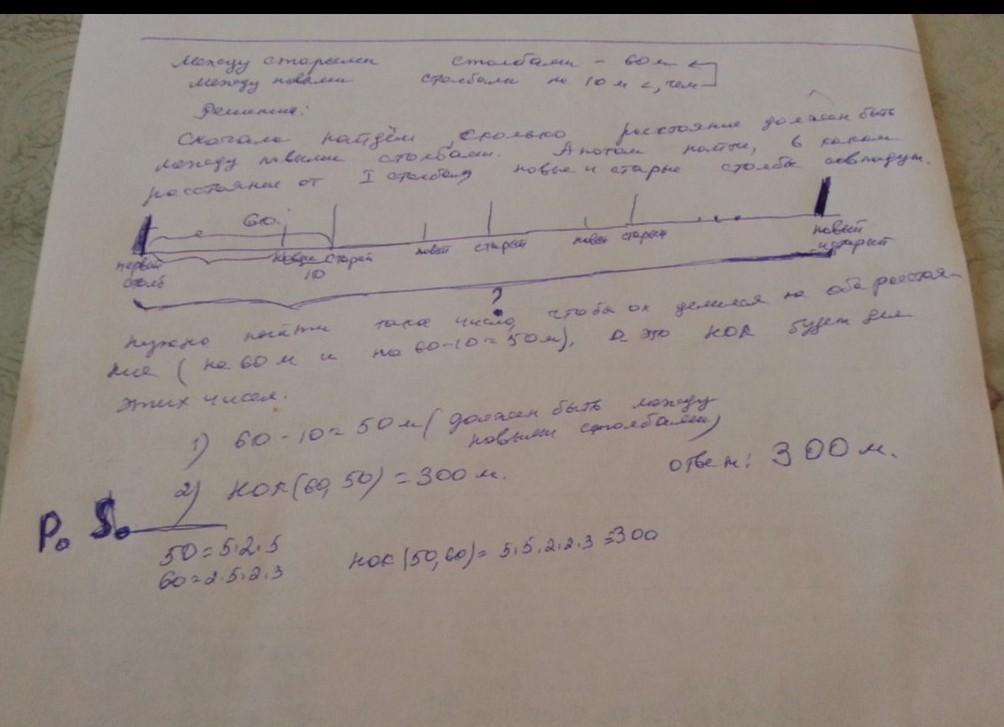 Между старыми столбами - 60 м
между новыми столбами на 10 м <, чем
Решение:
Сначала найдём сколько расстояние должен быть
между новыми столбами. А потом найти, в каком
расстояние от I столба новые и старые столбы совпадут.
60
первый столб новый старый новый старый новый старый новый и старый
10
?
Нужно найти такое число, чтобы он делился на оба расстоя-
ние (на 60 м и на 60-10=50м), а это НОК будет для
этих чисел.
1) 60-10=50 м (должен быть между
новыми столбами)
2) НОК(60,50)=300 м.
ответ: 300 м.
P. S.
50=5·2·5
60=2·5·2·3
НОК(50,60)=5·5·2·2·3=300